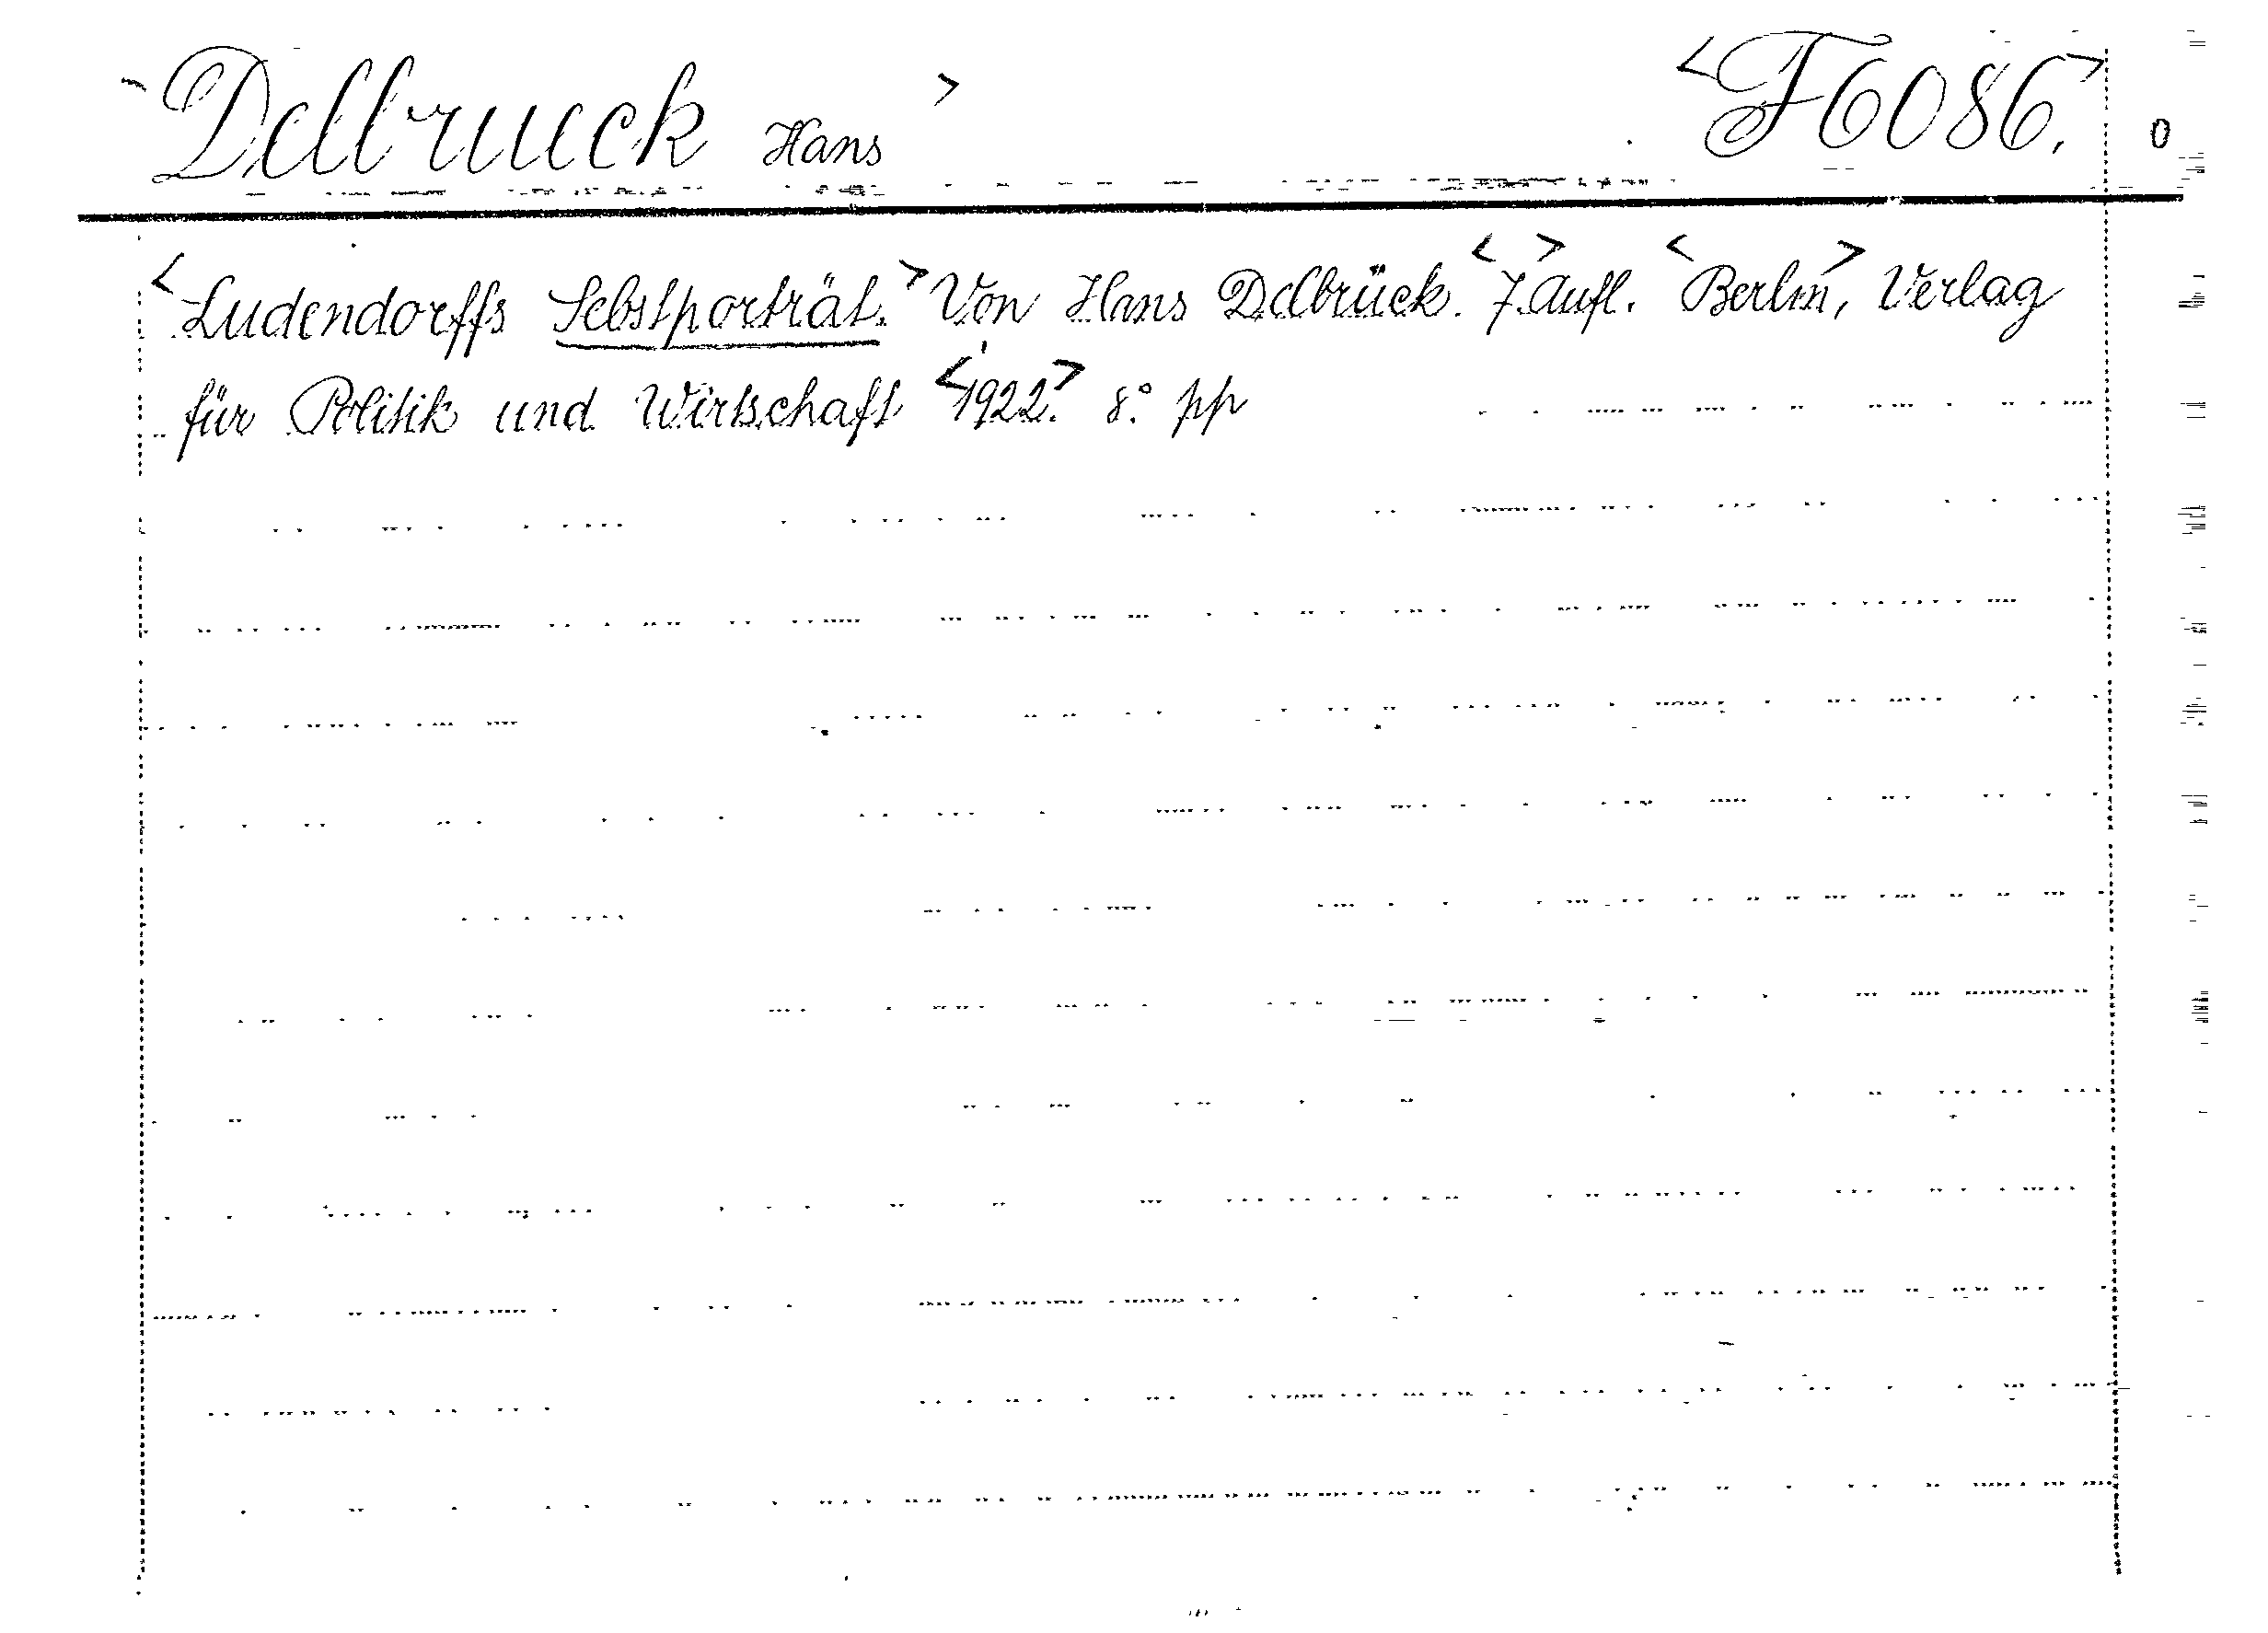 <Delbrueck Hans> <F6086.> 0
<Ludendorffs Selbstporträt.> Von Hans Delbrück. <7.> Aufl. <Berlin>, Verlag
für Politik und Wirtschaft <1922.> 8.° pp